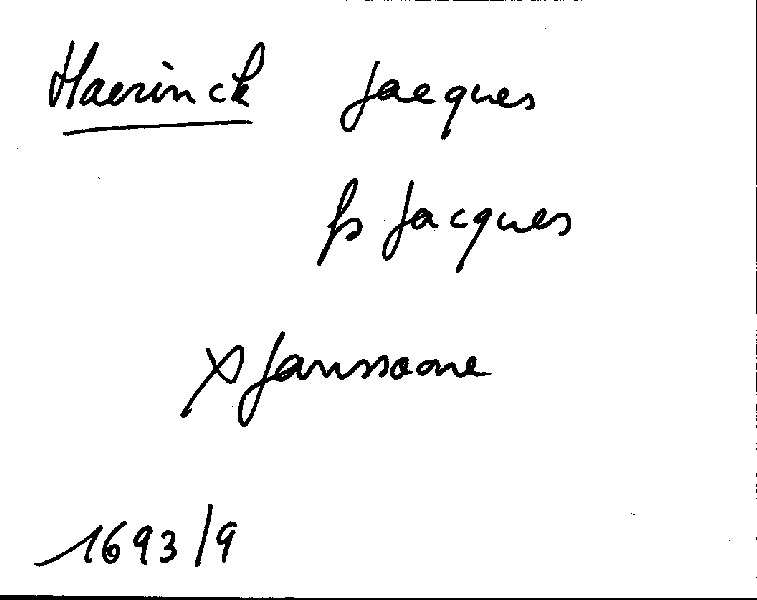 Haerinck Jacques
fs Jacques
x Janssoone
1693/9